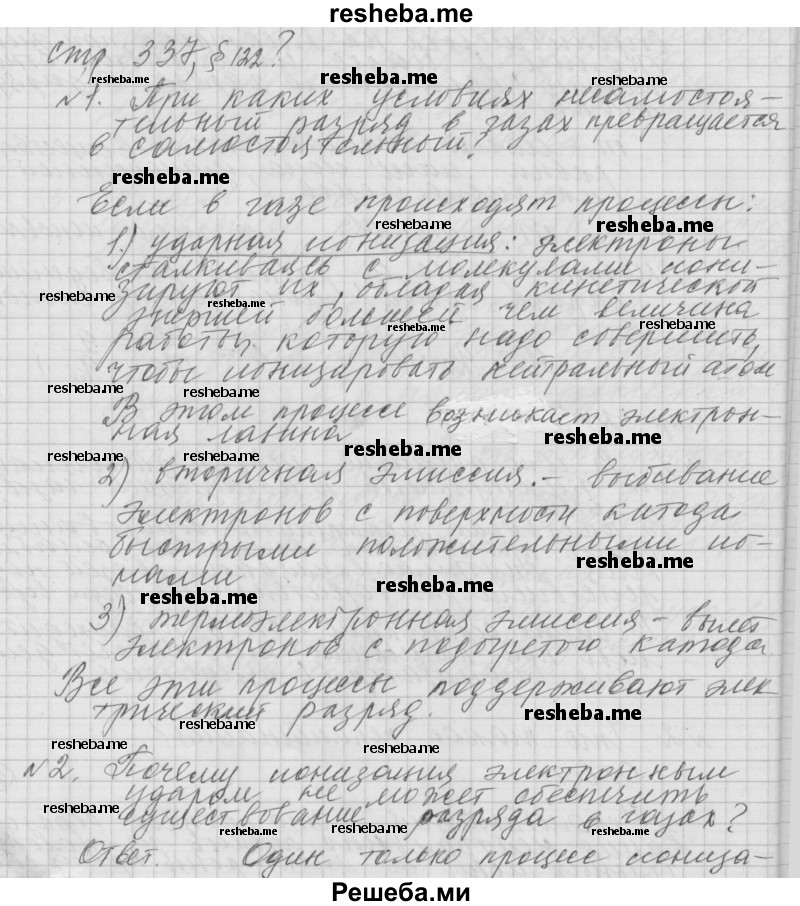 resheba.me
стр 337, § 122?
resheba.me resheba.me resheba.me
№1. При каких условиях несамостоя-
тельный разряд в газах превращается
в самостоятельный?
resheba.me
Если в газе происходят процессы:
resheba.me resheba.me
1.) ударная ионизация: электроны
сталкиваясь с молекулами иони-
resheba.me
зируют их, обладая кинетической
resheba.me
энергией большей чем величина
resheba.me resheba.me
работы, которую надо совершить,
чтобы ионизировать нейтральный атом
resheba.me resheba.me
В этом процессе возникает электрон-
ная лавина
resheba.me resheba.me
resheba.me resheba.me
2) вторичная эмиссия. - выбивание
электронов с поверхности катода
быстрыми положительными ио-
resheba.me
нами
resheba.me resheba.me
3) термоэлектронная эмиссия - вылет
электронов с подогретого катода
Все эти процессы поддерживают элек
трический разряд.
resheba.me resheba.me
resheba.me resheba.me
№2. Почему ионизация электронным
ударом не может обеспечить
resheba.me
существование разряда в газах?
resheba.me resheba.me resheba.me
Ответ. Один только процесс иониза-
Решеба.ми